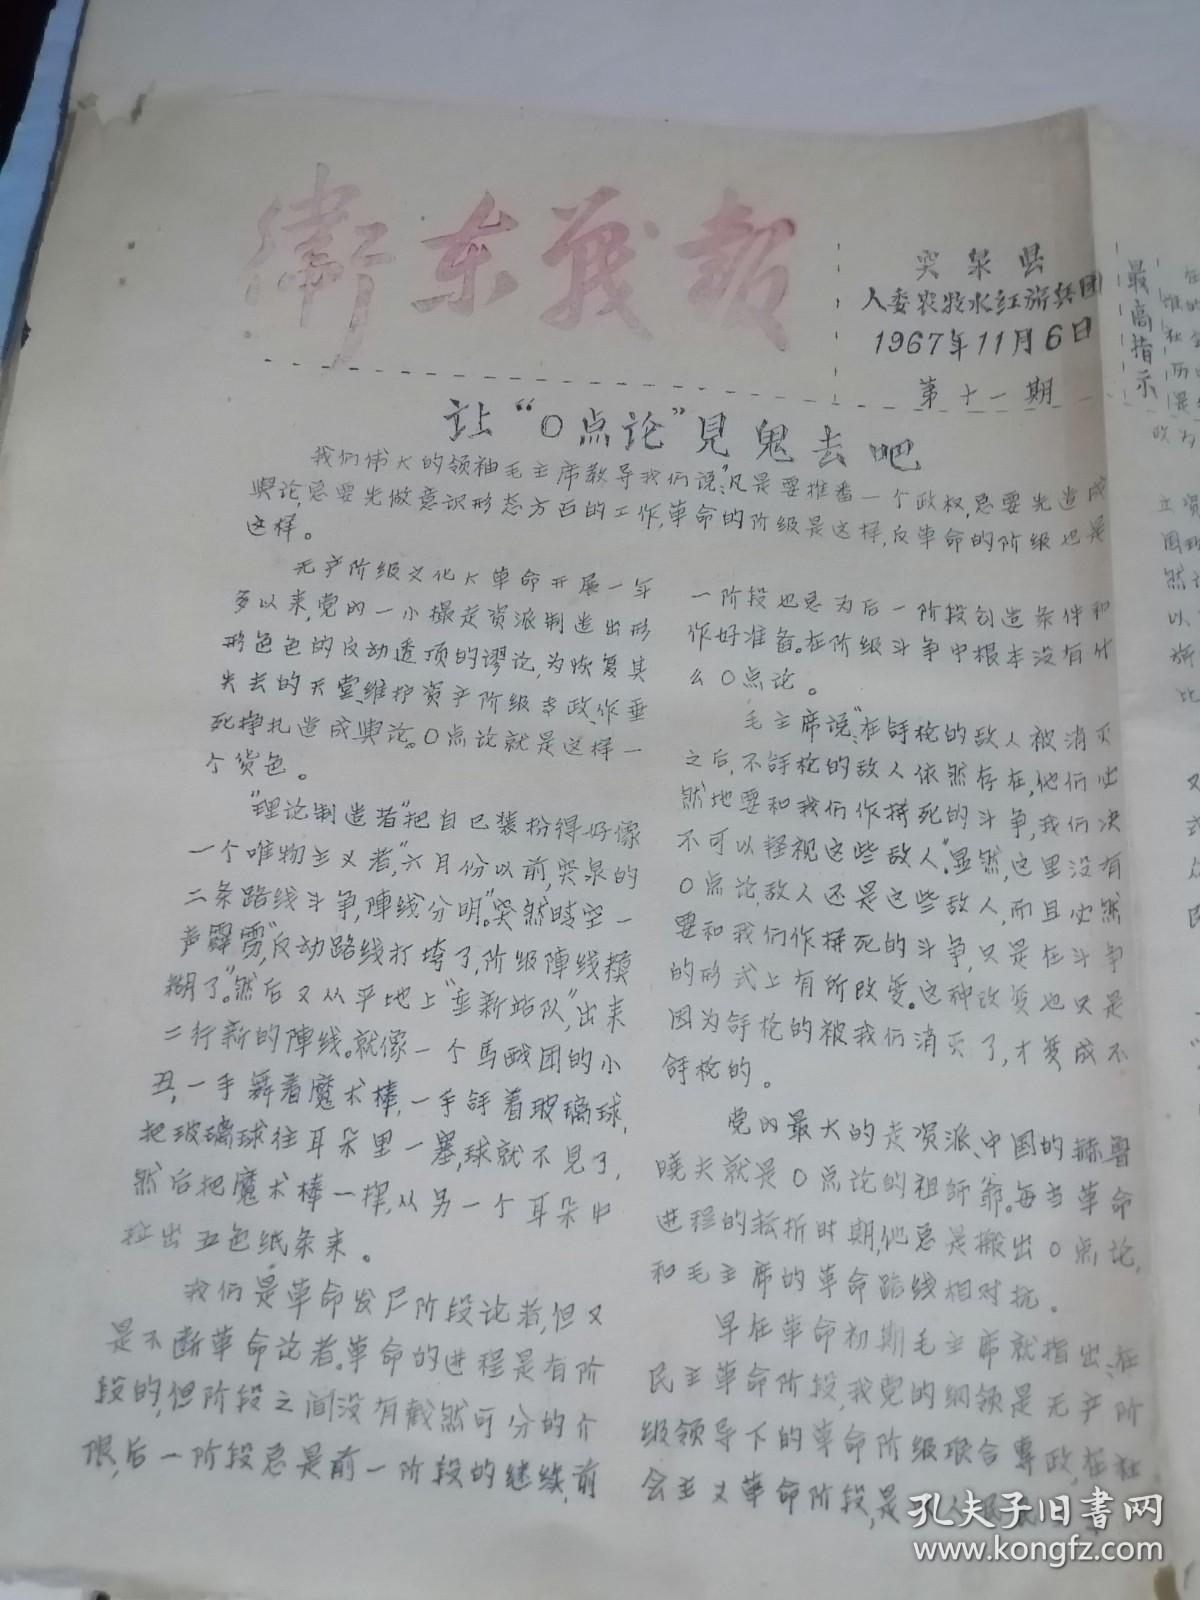 衛东战报
突泉县
人委农牧水红旗兵团
1967年11月6日
第十一期
最高指示
让“0点论”見鬼去吧
我们伟大的领袖毛主席教导我们说:“凡是要推番一个政权,总要先造成
舆论,总要先做意识形态方面的工作,革命的阶级是这样,反革命的阶级也是
这样。
无产阶级文化大革命开展一年
多以来,党内一小撮走资派制造出形
形色色的反动透顶的谬论,为恢复其
失去的天堂、维护资产阶级专政、作垂
死挣扎造成舆论。0点论就是这样一
个货色。
“理论制造者”把自已装扮得好像
一个唯物主义者,“六月份以前,突泉的
二条路线斗争,陣线分明。”“突然晴空一
声霹雳”,反动路线打垮了,阶级陣线模
糊了。”然后又从平地上“重新站队”,出来
二行新的陣线。就像一个馬戲团的小
丑,一手舞着魔术棒,一手拿着玻璃球,
把玻璃球往耳朵里一塞,球就不見了,
然后把魔术棒一挥,从另一个耳朵中
拉出五色纸条来。
我们是革命发展阶段论者,但又
是不断革命论者。革命的进程是有阶
段的,但阶段之间没有截然可分的介
限,后一阶段总是前一阶段的继续,前
一阶段也总为后一阶段创造条件和
作好准备。在阶级斗争中根本没有什
么0点论。
毛主席说:“在拿枪的敌人被消灭
之后,不拿枪的敌人依然存在,他们必
然地要和我们作拚死的斗争,我们决
不可以轻视这些敌人”。显然,这里没有
0点论,敌人还是这些敌人,而且必然
要和我们作拚死的斗争,只是在斗争
的形式上有所改变。这种改变也只是
因为拿枪的被我们消灭了,才变成不
拿枪的。
党内最大的走资派、中国的赫鲁
曉夫就是0点论的祖師爺。每当革命
进程的転折时期,他总是搬出0点论,
和毛主席的革命路线相对抗。
早在革命初期毛主席就指出:在
民主革命阶段,我党的纲领是无产阶
级领导下的革命阶级联合專政,在社
会主义革命阶段,是人
孔夫子旧書网
www.kongfz.com